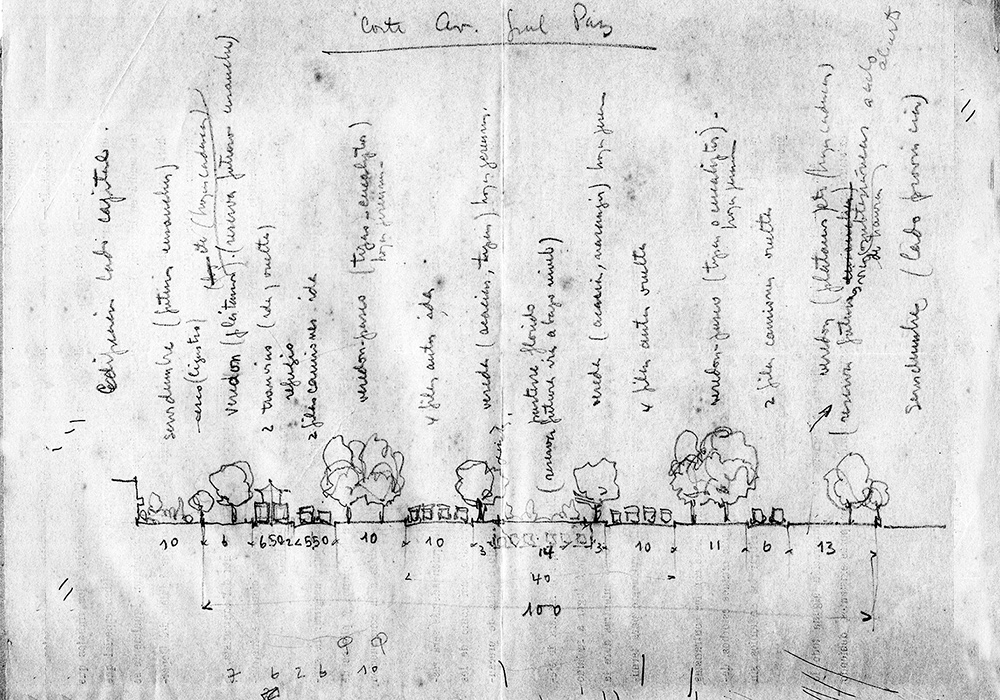 Corte Av. Gral Paz
Edificación lado capital.
servidumbre (futuro ensanche)
cerco (ligustro)
(hoja caduca)
veredon (plátanos) (reserva futuro ensanche)
2 tranvías (ida, vuelta)
refugio
2 filas camiones ida
veredon-paseo (tipas o eucaliptos)
hoja perenne
4 filas autos ida
vereda (acacias, tipas) hoja perenne
parterre florido
(reserva futura vía a bajo nivel)
vereda (acacia, naranjos) hoja peren
4 filas autos vuelta
veredon-paseo (tipas o eucaliptos).
hoja perenne
2 filas camiones vuelta
veredon (plátanos etc) (hoja caduca)
(reserva futuras vías subterráneas a cielo abierto
servidumbre (lado provincia)
10 6 6 50 2 5 50 10 10 3 14 3 10 11 6 13
40
100
7 6 2 6 10